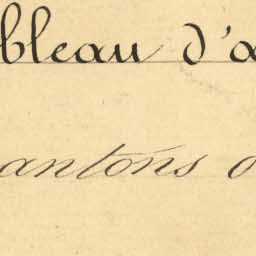 bleau d'a
antons d